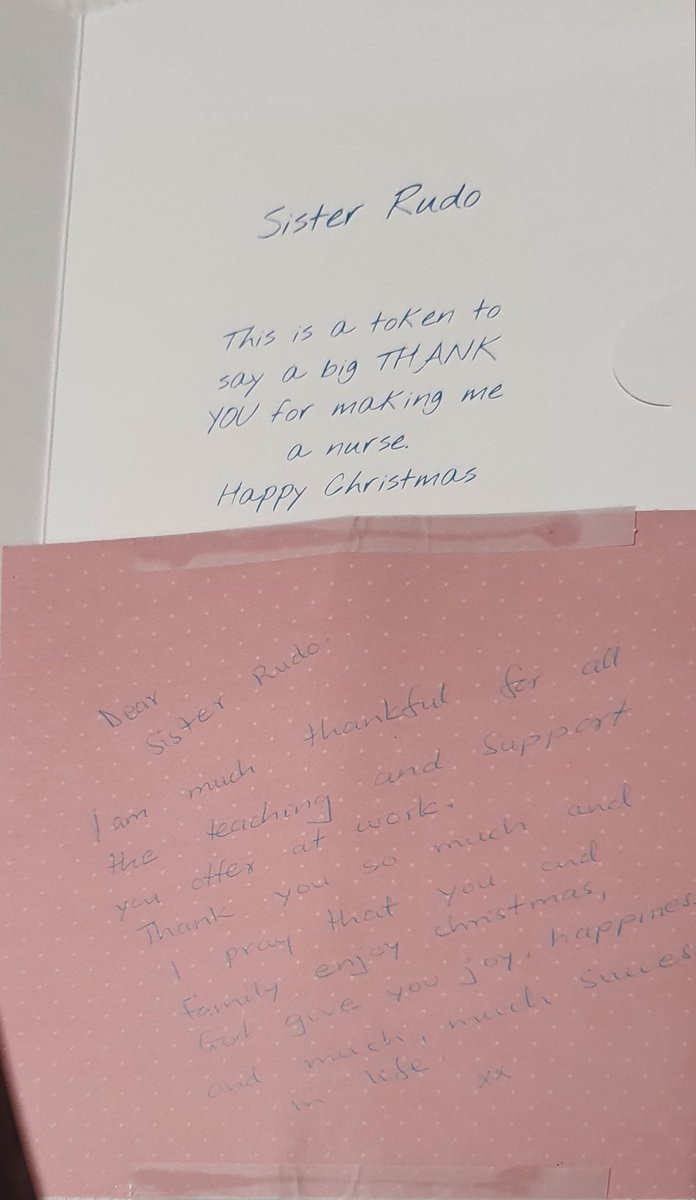 Sister Rudo
This is a token to
say a big THANK
YOU for making me
a nurse.
Happy Christmas
Dear
Sister Rudo.
I am much thankful for all
the teaching and support
you offer at work.
Thank you so much and
I pray that you and
family enjoy christmas,
God give you joy, happines
and much, much succes
in life. xx